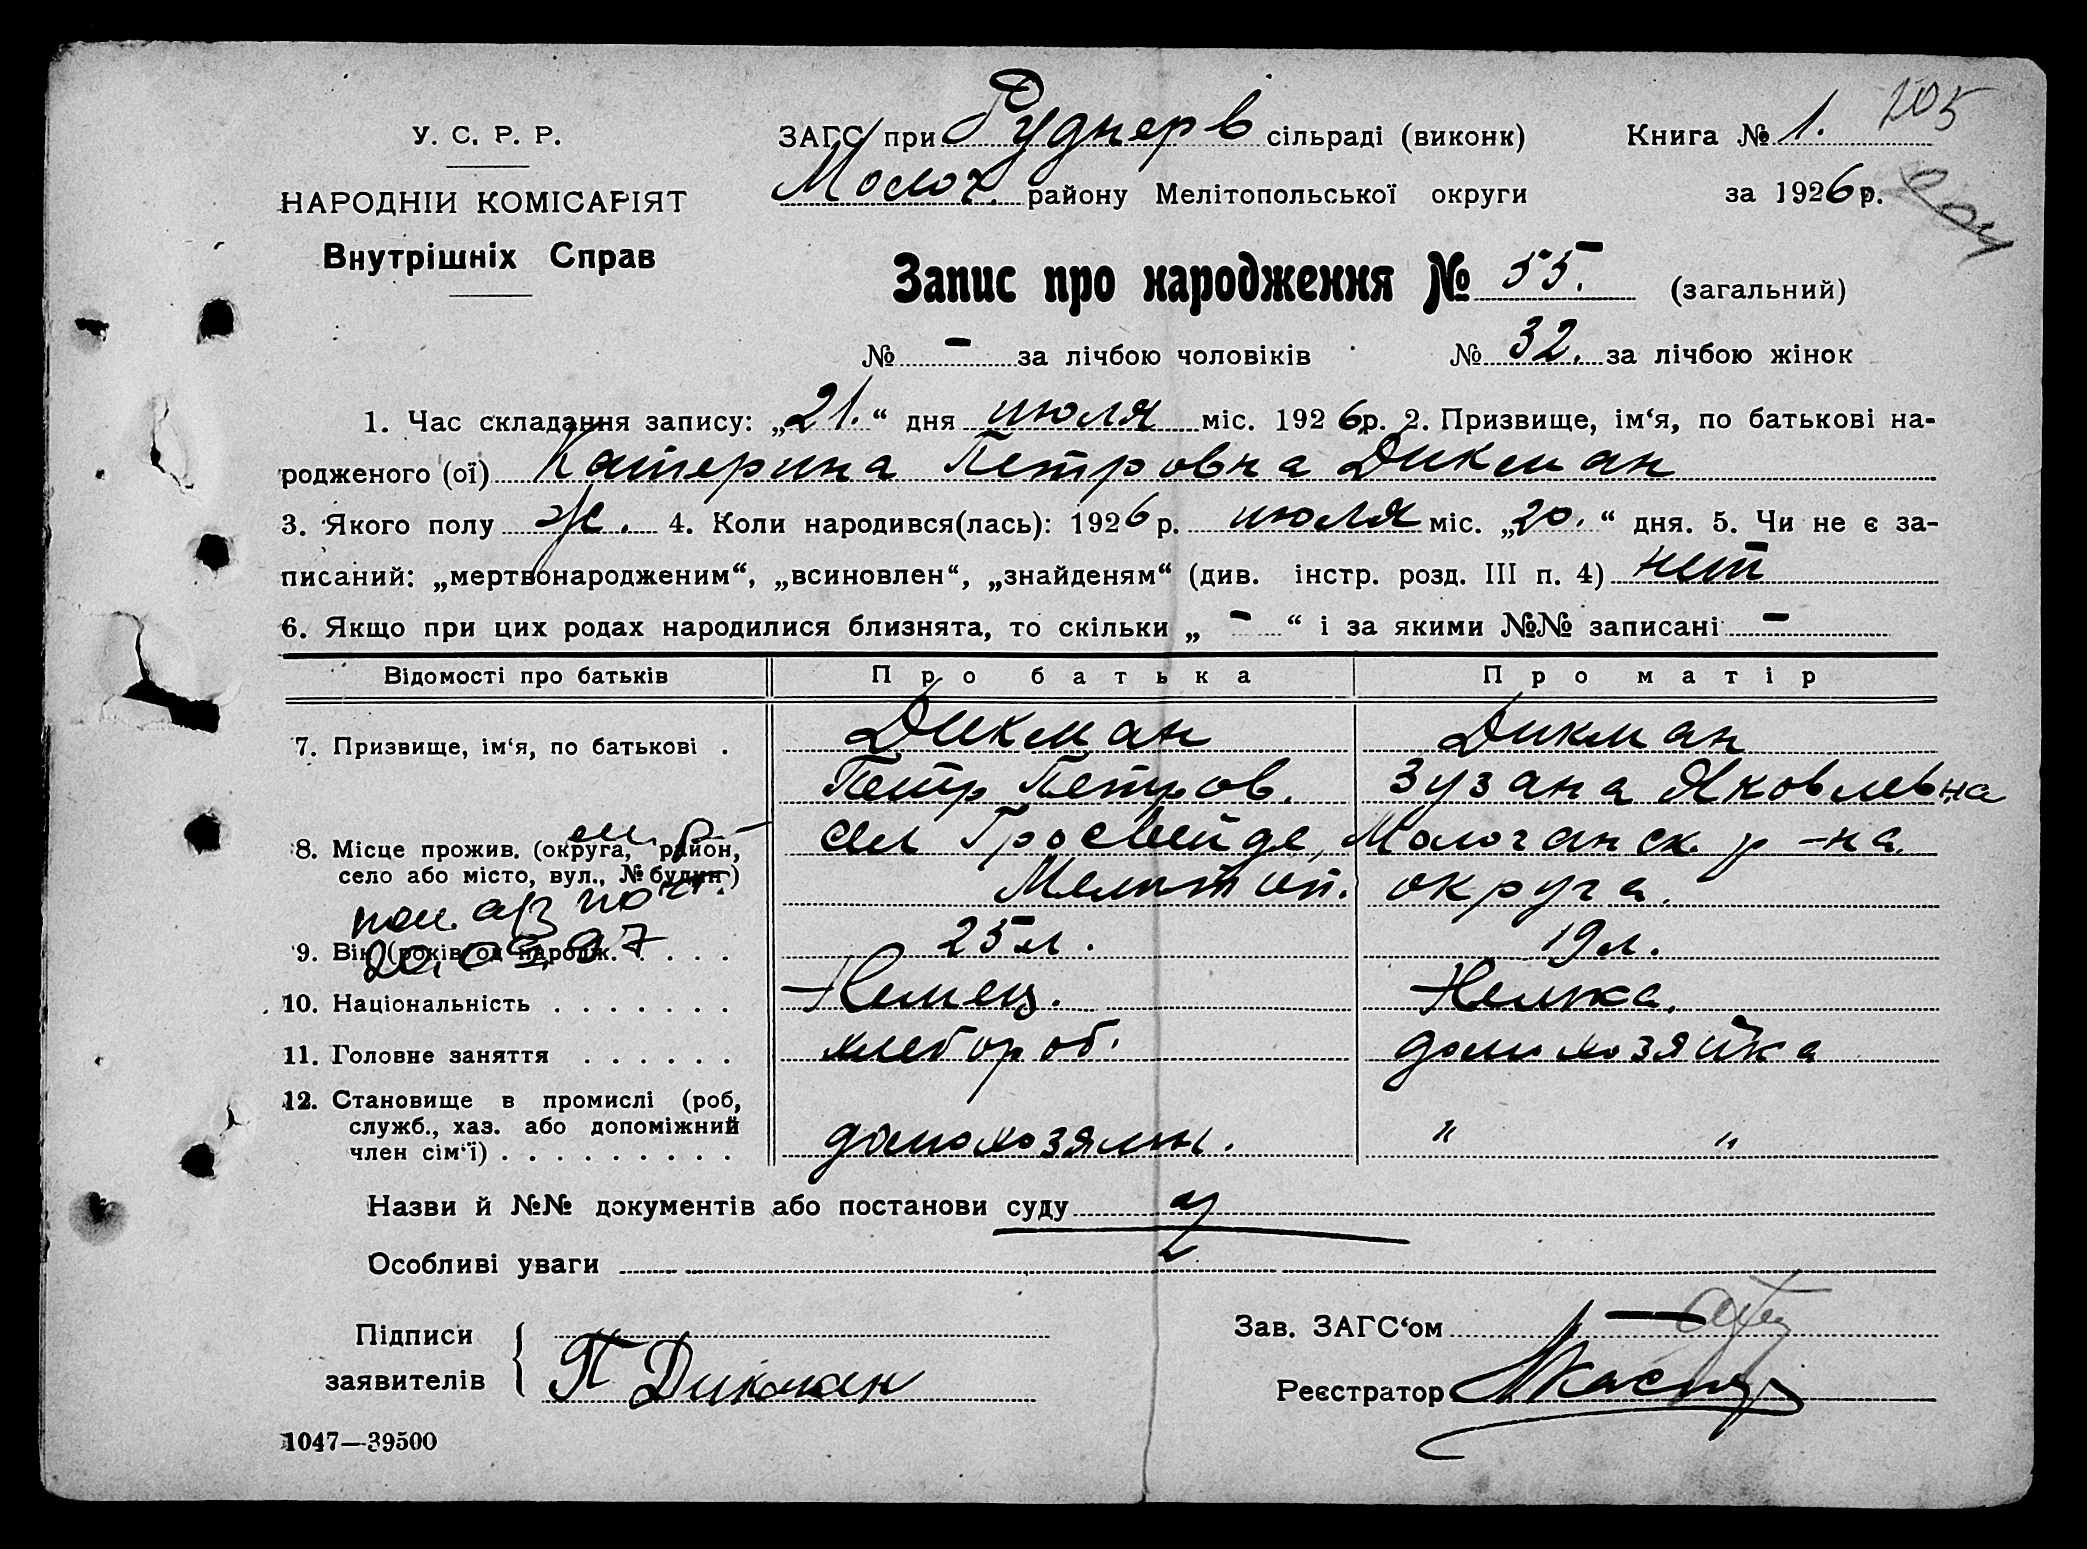 205
У. С. Р. Р.
ЗАГС при Руднерв сільраді (виконк) Книга № 1.
НАРОДНІЙ КОМІСАРІЯТ
Молоч. району Мелітопольської округи за 1926 р.
Внутрішніх Справ
Запис про народження № 55. (загальний)
№ - за лічбою чоловіків № 32. за лічбою жінок
1. Час складання запису: „21.“ дня июля міс. 1926 р. 2. Призвище, ім‘я, по батькові на-
родженого (ої) Катерина Петровна Дикман
3. Якого полу ж. 4. Коли народився(лась): 1926 р. июля міс. „20.“ дня. 5. Чи не є за-
писаний: „мертвонародженим“, „всиновлен“, „знайденям“ (див. інстр. розд. III п. 4) нет
6. Якщо при цих родах народилися близнята, то скільки „ - “ і за якими №№ записані -
Відомості про батьків Про батька Про матір
7. Призвище, ім‘я, по батькові . Дикман Дикман
Петр Петров. Зузана Яковлевна
8. Місце прожив. (округа, район, сел Гросвейде, Молочанск. р-на
село або місто, вул., № будин) Мелитоп. округа.
20.03.97
9. Вік (років од народж. . . . . 25 л. 19 л.
10. Національність . . . . . . . Немец. Немка.
11. Головне заняття . . . . . . хлебороб. домохозяйка
12. Становище в промислі (роб,
служб., хаз. або допоміжний
член сім‘ї) . . . . . . . . . домохозяин. " "
Назви й №№ документів або постанови суду
Особливі уваги
Підписи Зав. ЗАГС‘ом -
заявителів П Дикман Реєстратор
1047—39500